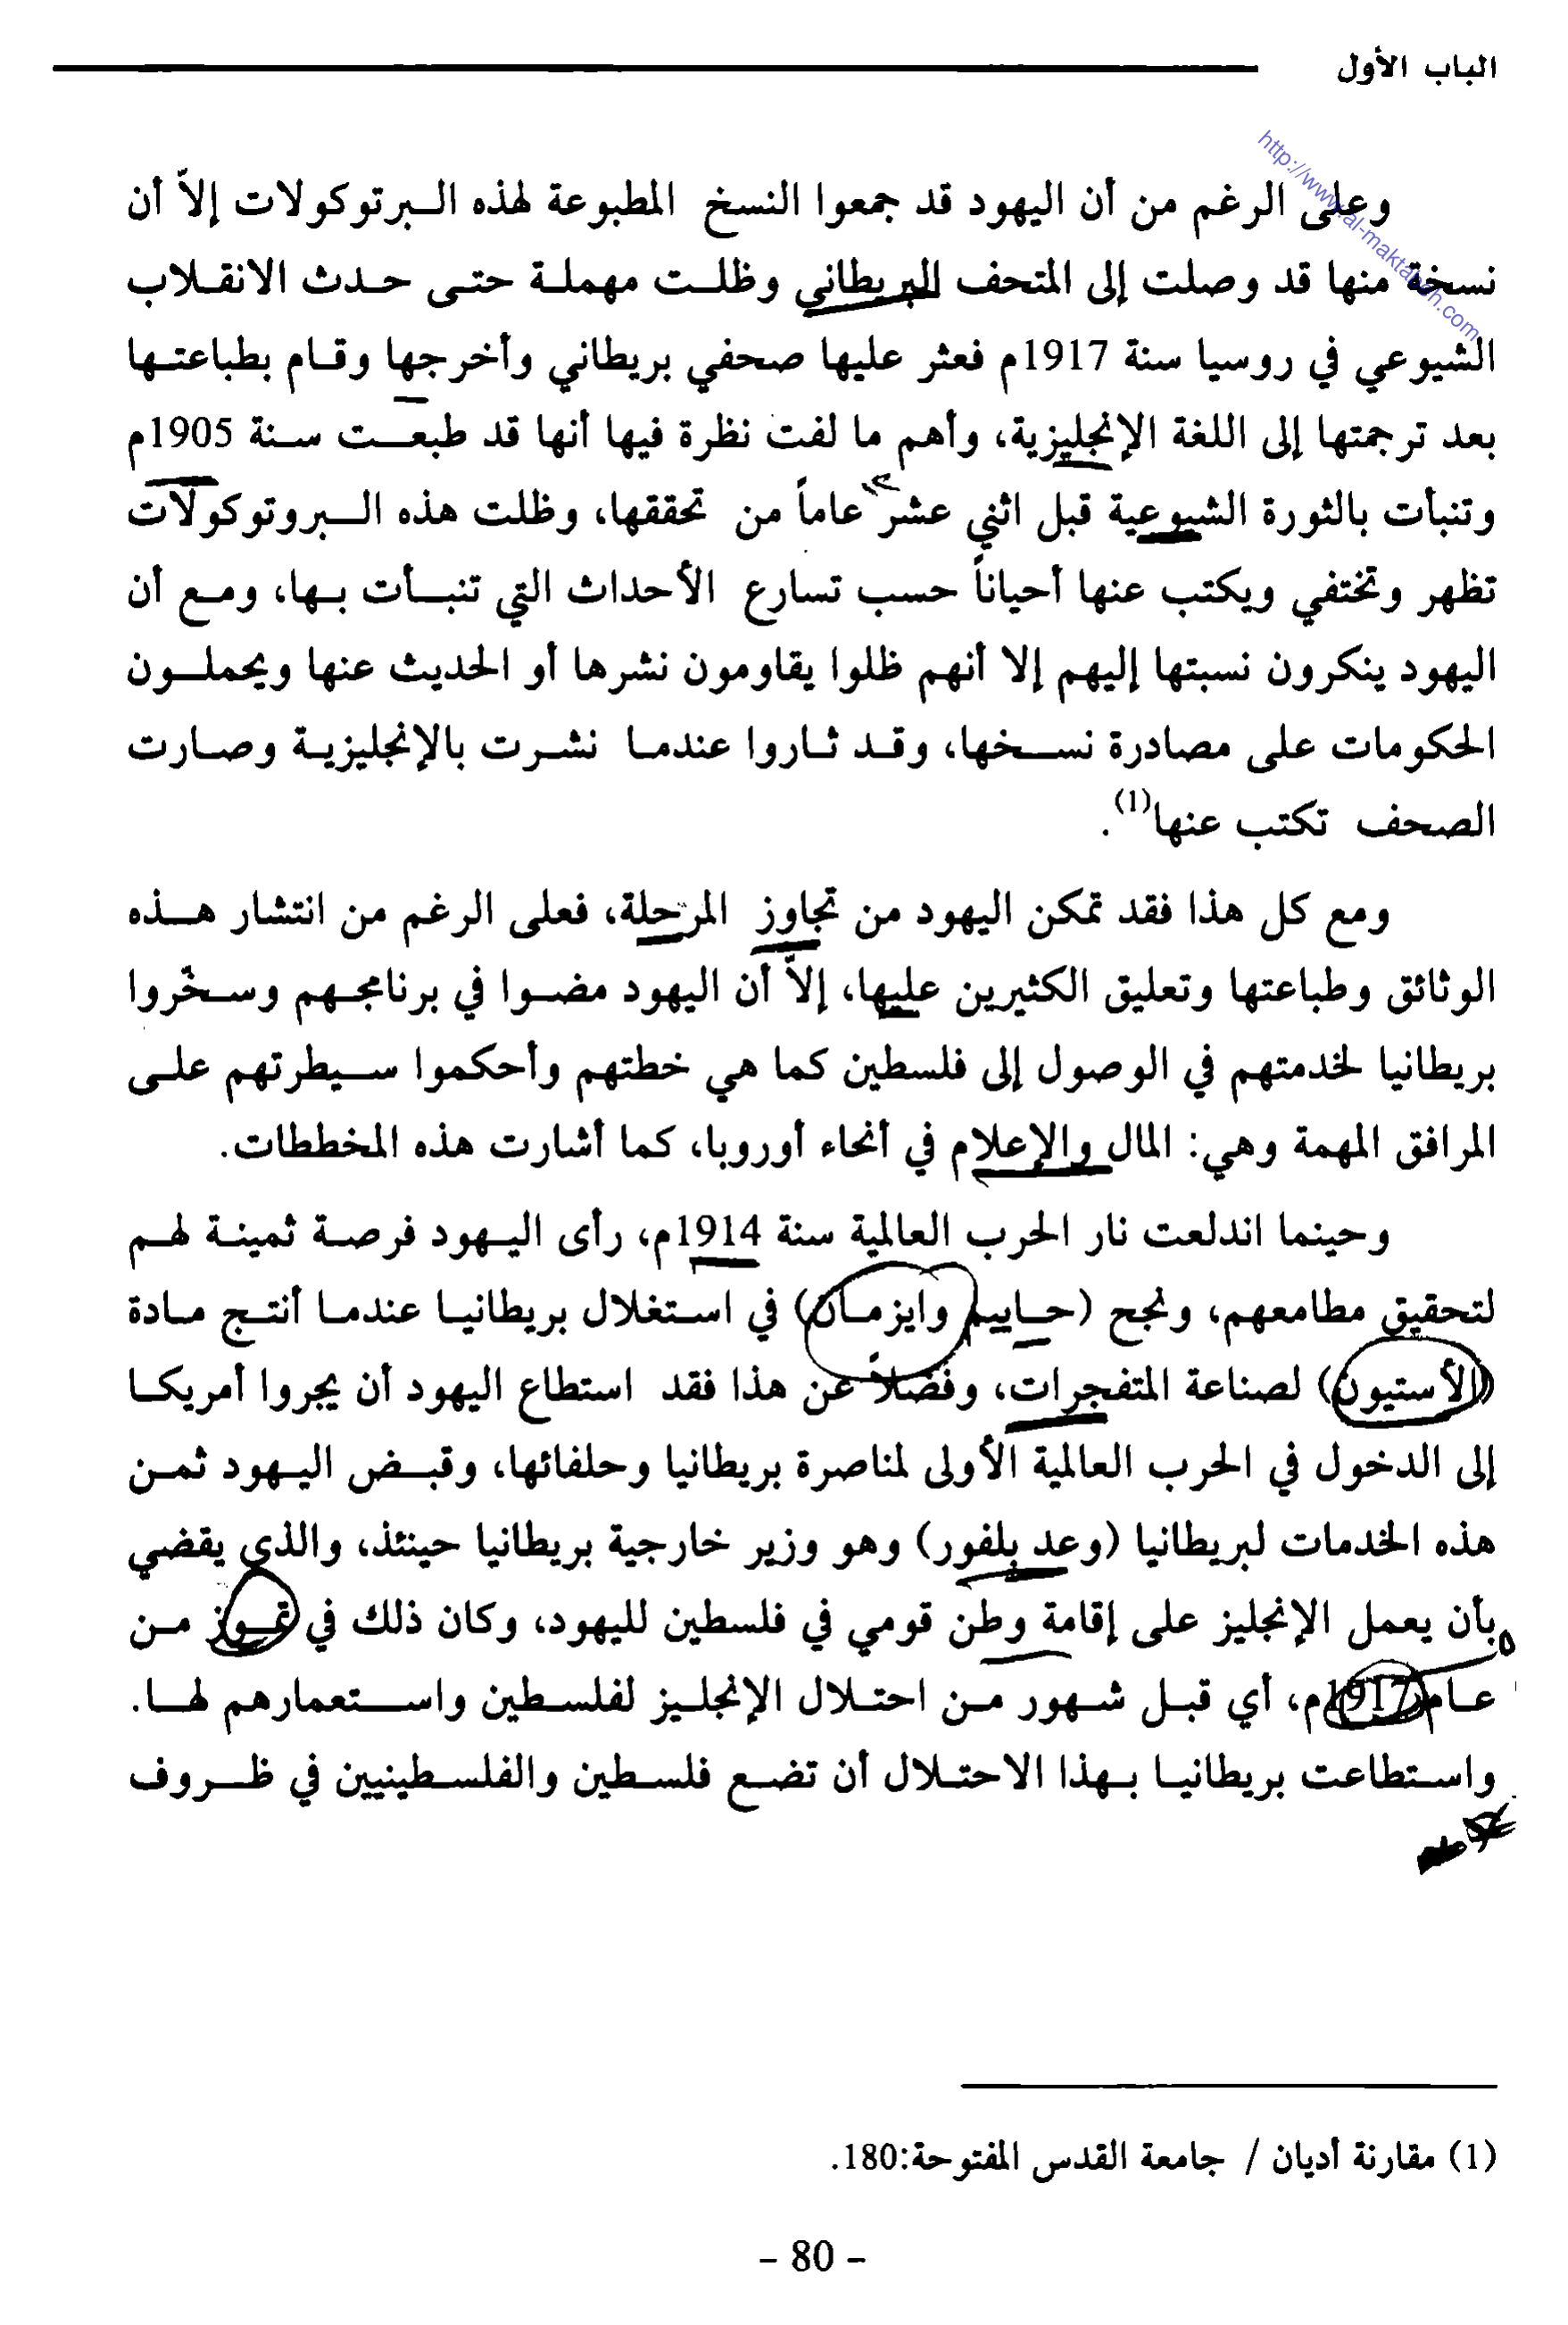 الباب الأول
http://www.al-maktabeh.com
وعلى الرغم من أن اليهود قد جمعوا النسخ المطبوعة لهذه البرتوكولات إلاّ أن
نسخة منها قد وصلت إلى المتحف البريطاني وظلت مهملة حتى حدث الانقلاب
الشيوعي في روسيا سنة 1917م فعثر عليها صحفي بريطاني وأخرجها وقام بطباعتها
بعد ترجمتها إلى اللغة الإنجليزية، وأهم ما لفت نظرة فيها أنها قد طبعت سنة 1905م
وتنبأت بالثورة الشيوعية قبل اثني عشر عاماً من تحققها، وظلت هذه البروتوكولات
تظهر وتختفي ويكتب عنها أحياناً حسب تسارع الأحداث التي تنبأت بها، ومع أن
اليهود ينكرون نسبتها إليهم إلا أنهم ظلوا يقاومون نشرها أو الحديث عنها ويحملون
الحكومات على مصادرة نسخها، وقد ثاروا عندما نشرت بالإنجليزية وصارت
الصحف تكتب عنها(1).
ومع كل هذا فقد تمكن اليهود من تجاوز المرحلة، فعلى الرغم من انتشار هذه
الوثائق وطباعتها وتعليق الكثيرين عليها، إلاّ أن اليهود مضوا في برنامجهم وسخّروا
بريطانيا لخدمتهم في الوصول إلى فلسطين كما هي خطتهم وأحكموا سيطرتهم على
المرافق المهمة وهي: المال والإعلام في أنحاء أوروبا، كما أشارت هذه المخططات.
وحينما اندلعت نار الحرب العالمية سنة 1914م، رأى اليهود فرصة ثمينة لهم
لتحقيق مطامعهم، ونجح (حاييم وايزمان) في استغلال بريطانيا عندما أنتج مادة
(الأستيون) لصناعة المتفجرات، وفضلاً عن هذا فقد استطاع اليهود أن يجروا أمريكا
إلى الدخول في الحرب العالمية الأولى لمناصرة بريطانيا وحلفائها، وقبض اليهود ثمن
هذه الخدمات لبريطانيا (وعد بلفور) وهو وزير خارجية بريطانيا حينئذ، والذي يقضي
بأن يعمل الإنجليز على إقامة وطن قومي في فلسطين لليهود، وكان ذلك في تموز من
عام 1917م، أي قبل شهور من احتلال الإنجليز لفلسطين واستعمارهم لها.
واستطاعت بريطانيا بهذا الاحتلال أن تضع فلسطين والفلسطينيين في ظروف
(1) مقارنة أديان / جامعة القدس المفتوحة:180.
- 80 -